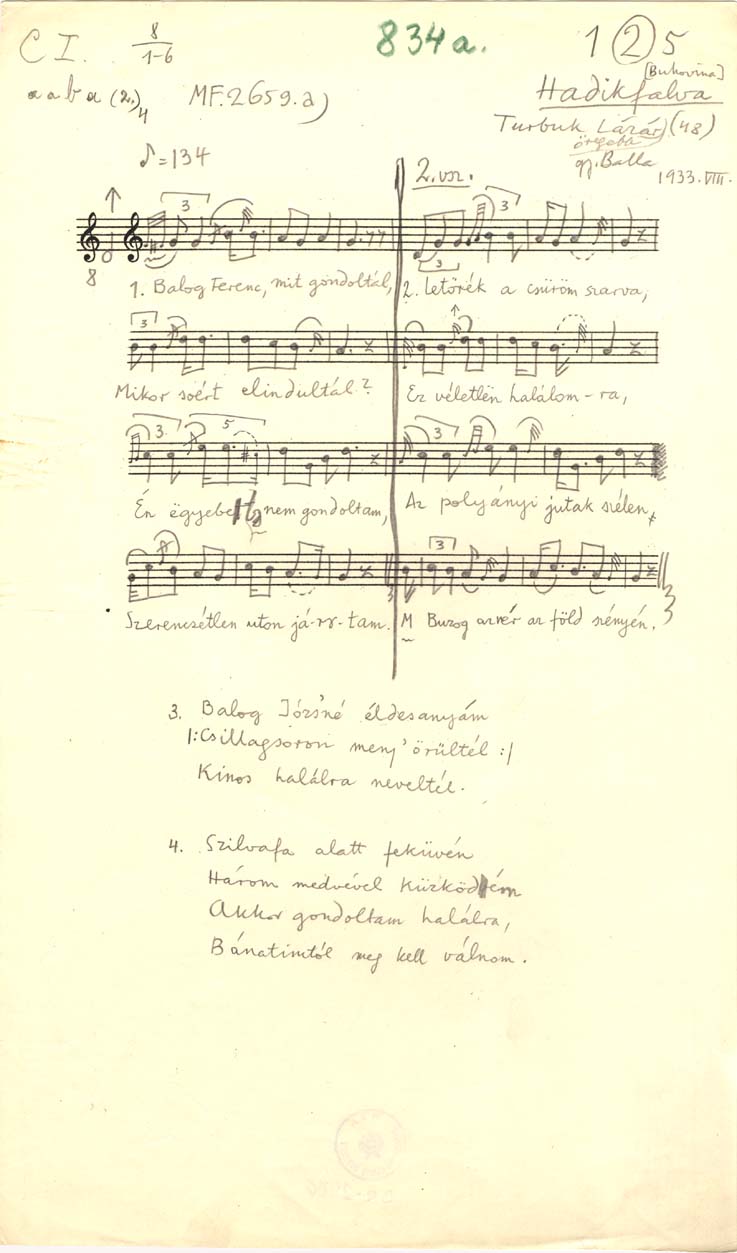 C I. 8/1-6 834a. 1 2 5
a a b a (2.)4 MF. 2659. a) [Bukovina]
Hadikfalva
Turbuk Lázár (48)
öregebb
gj. Balla
1933. VIII.
♪ = 134 2. vsz.
3 3 3
8
1. Balog Ferenc, mit gondoltál, 2. Letörék a csűröm szarva,
3
Mikor soért elindultál? Ez véletlen halálom-ra,
3 5 3
Én ëgyebet nem gondoltam, Az polyányi jutak szélen,
3
Szerencsétlen uton já-rr-tam. M Buzog az vér az föld színyén.
3. Balog Józs'né éldesanyám
|: Csillagsoron menj' örültél :|
Kinos halálra neveltél.
4. Szilvafa alatt feküvén
Három medvével küzködvém
Akkor gondoltam halálra,
Bánatimtól meg kell válnom.